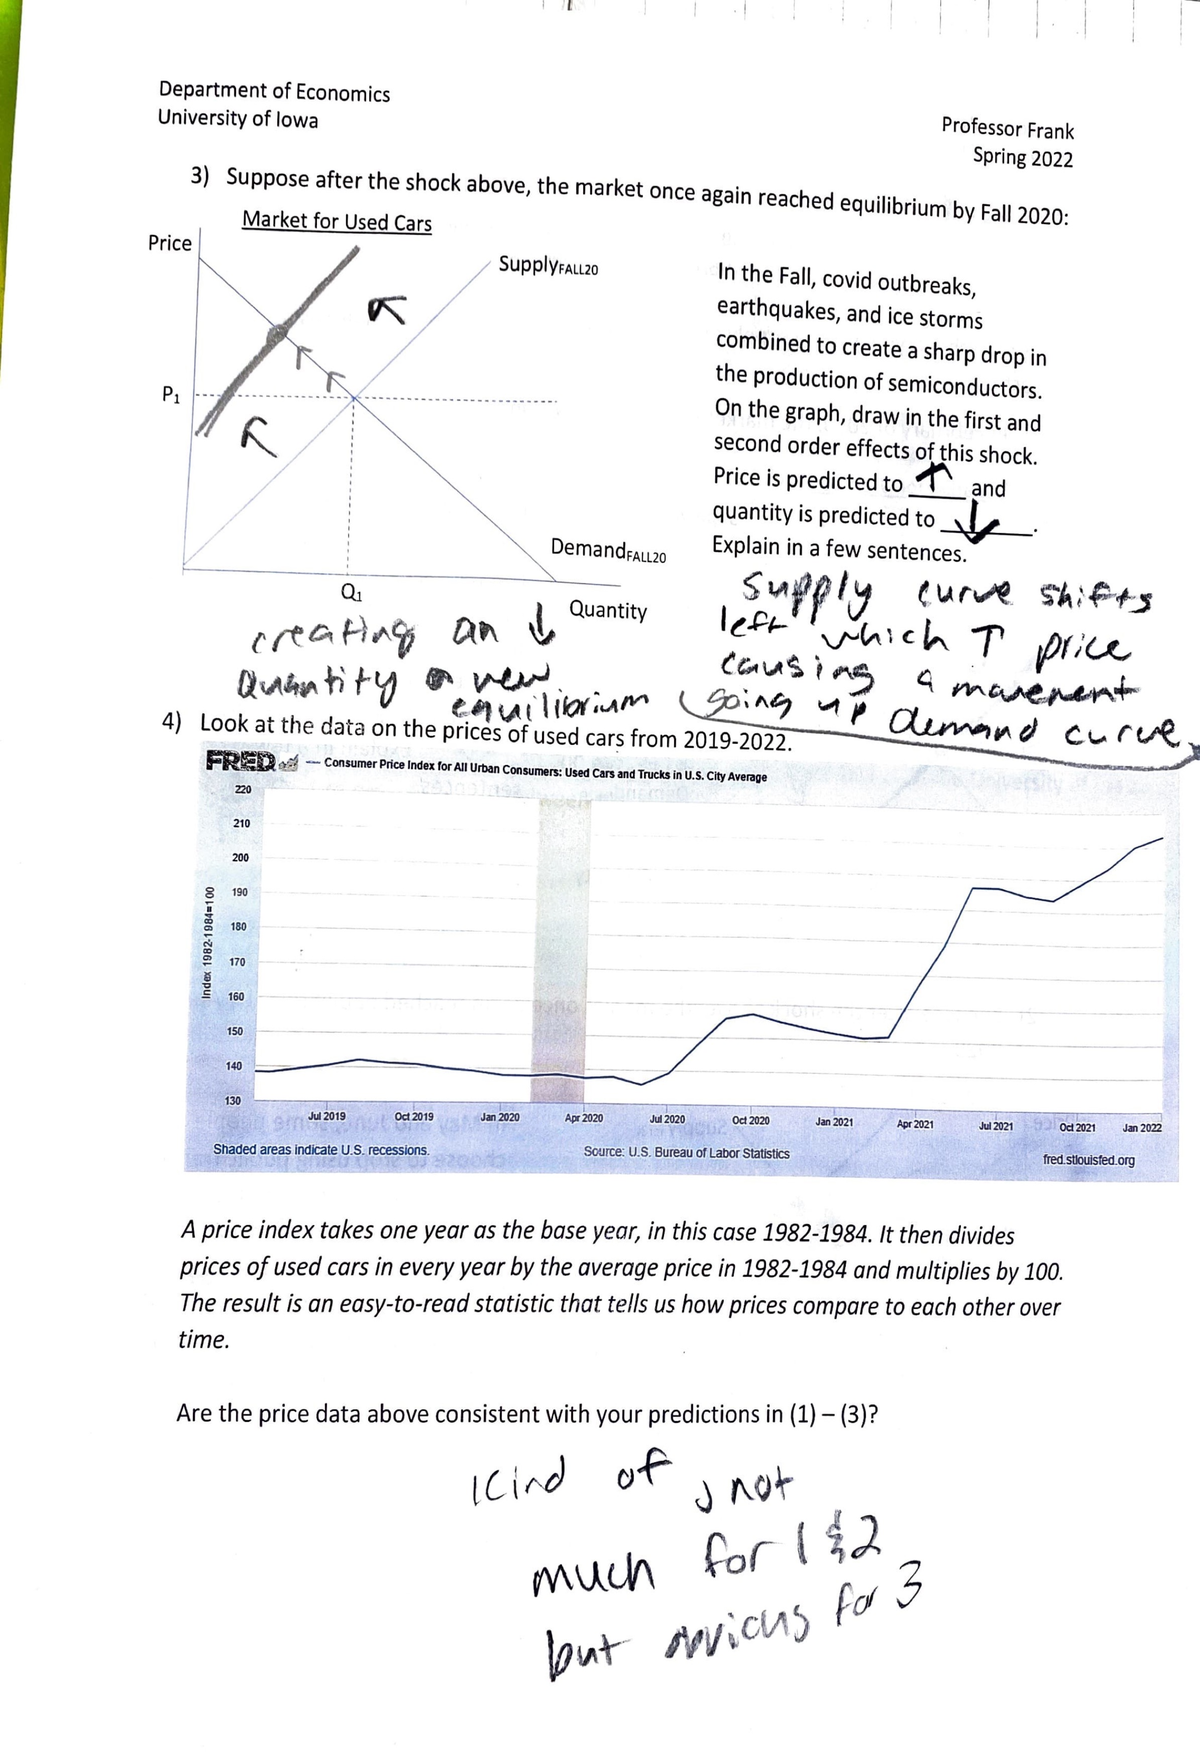 Department of Economics
University of Iowa
Professor Frank
Spring 2022
3) Suppose after the shock above, the market once again reached equilibrium by Fall 2020:
Market for Used Cars
Price
SupplyFALL20
P1
DemandFALL20
Q1
Quantity
In the Fall, covid outbreaks,
earthquakes, and ice storms
combined to create a sharp drop in
the production of semiconductors.
On the graph, draw in the first and
second order effects of this shock.
Price is predicted to ↑ and
quantity is predicted to ↓.
Explain in a few sentences.
supply curve shifts
left which ↑ price
causing a movement
going up demand curve
creating an ↓
Quantity new
equilibrium
4) Look at the data on the prices of used cars from 2019-2022.
FRED — Consumer Price Index for All Urban Consumers: Used Cars and Trucks in U.S. City Average
220
210
200
190
180
170
160
150
140
130
Index 1982-1984=100
Jul 2019 Oct 2019 Jan 2020 Apr 2020 Jul 2020 Oct 2020 Jan 2021 Apr 2021 Jul 2021 Oct 2021 Jan 2022
Shaded areas indicate U.S. recessions.
Source: U.S. Bureau of Labor Statistics
fred.stlouisfed.org
A price index takes one year as the base year, in this case 1982-1984. It then divides
prices of used cars in every year by the average price in 1982-1984 and multiplies by 100.
The result is an easy-to-read statistic that tells us how prices compare to each other over
time.
Are the price data above consistent with your predictions in (1) – (3)?
Kind of, not
much for 1 & 2
but for 3